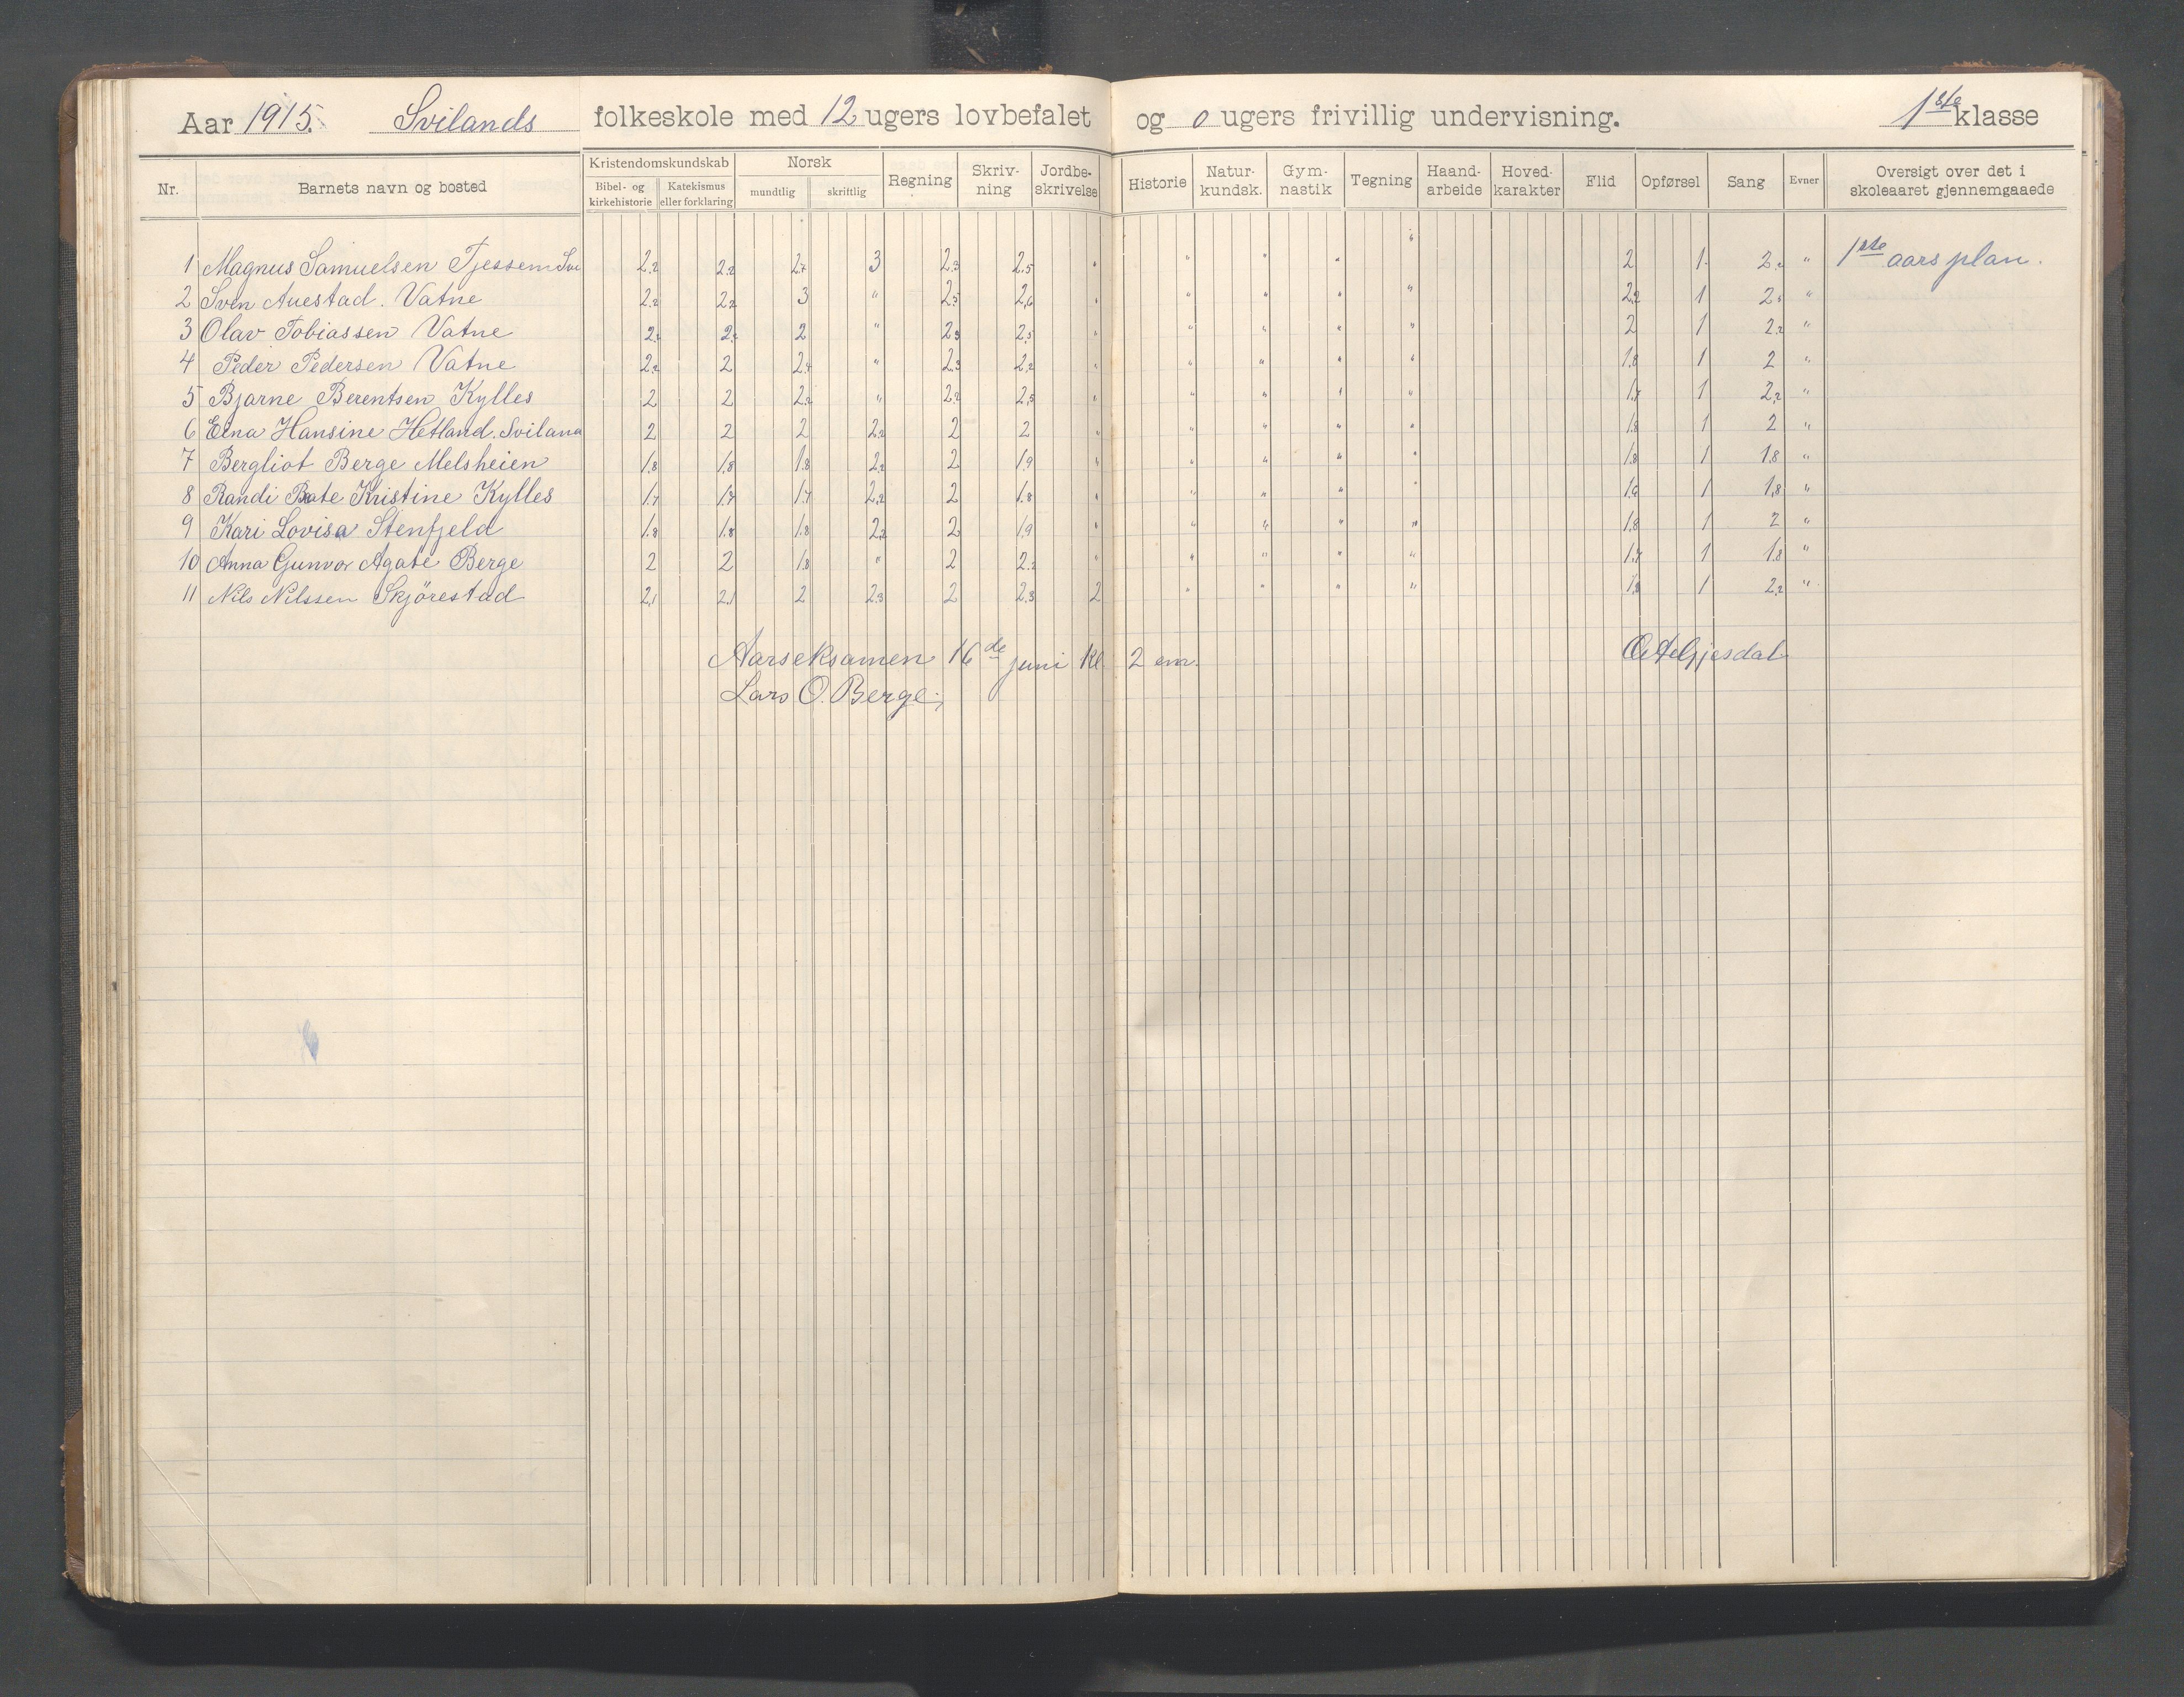 Aar 1915. Svilands folkeskole med 12 ugers lovbefalet og 0 ugers frivillig undervisning. 1ste klasse
Nr. Barnets navn og bosted Kristendomskundskab Bibel- og kirkehistorie Katekismus eller forklaring Norsk mundtlig skriftlig Regning Skriv-ning Jordbe-skrivelse Historie Natur-kundsk. Gym-nastik Tegning Haand-arbeide Hoved-karakter Flid Opførsel Sang Evner Oversigt over det i skoleaaret gjennemgaaede
1 Magnus Samuelsen Tjessem Svi 2,2 2,2 2,4 3 2,3 2,5 " " " " " 2 1 2,2 " 1ste aars plan.
2 Sven Auestad. Vatne 2,2 2,2 3 " 2,5 2,6 " " " " " 2,2 1 2,3 "
3 Olav Tobiassen Vatne 2,2 2,2 2 " 2,3 2,5 " " " " " 2 1 2,2 "
4 Peder Pedersen Vatne 2,2 2 2,4 " 2,3 2,2 " " " " " 1,8 1 2 "
5 Bjarne Berentsen Kylles 2 2 2,2 " 2,2 2,5 " " " " " 1,7 1 2,2 "
6 Elna Hansine Hetland. Sviland 2 2 2 2,2 2 2 " " " " " 1,8 1 2 "
7 Bergliot Berge Melsheien 1,8 1,8 1,8 2,2 2 1,9 " " " " " 1,8 1 1,8 "
8 Randi Beate Kristine Kylles 1,7 1,7 1,7 2,2 2 1,8 " " " " " 1,6 1 1,8 "
9 Kari Lovisa Stenfjeld 1,8 1,8 1,8 2,2 2 1,9 " " " " " 1,8 1 2 "
10 Anna Gunvor Agate Berge 2 2 1,8 " 2 2,2 " " " " " 1,7 1 1,8 "
11 Nils Nilssen Skjörestad 2,1 2,1 2 2,3 2 2,3 2 " " " " 1,8 1 2,2 "
Aarseksamen 16de juni kl 2 em. Gjesdal
Lars O. Berge;